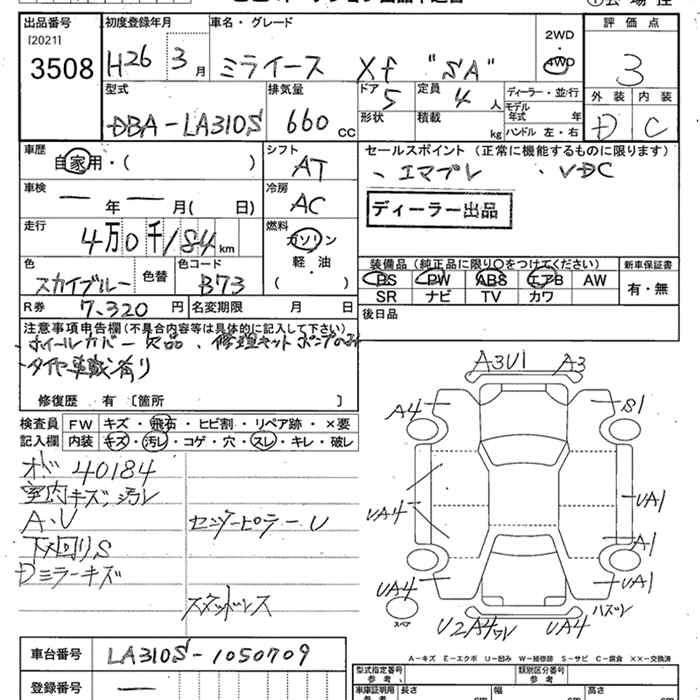 出品番号 初度登録年月 車名・グレード 2WD ・ 4WD 評価点
[2021]
3508 H26 3月 ミライース Xf "SA" 3
外装 内装
D C
型式 排気量 ドア 定員 ディーラー・並行
DBA-LA310S 660 CC 5 4人 モデル年式 年
形状 積載 kg ハンドル 左・右
車歴 シフト セールスポイント (正常に機能するものに限ります)
自家用・( ) AT 、エマブレ 、VDC
車検 冷房
ー年ー月(日) AC ディーラー出品
走行 燃料
4万0千184km ガソリン
軽・油
( )
色 色替 色コード 装備品(純正品に限り○をつけてください) 新車保証書
スカイブルー B73 PS PW ABS エアB AW 有・無
SR ナビ TV カワ
R券 7,320円 名変期限 月 日 後日品
注意事項申告欄(不具合内容等は具体的に記入して下さい)
、ホイールカバー欠品、修理キットポンプのみ
、タイヤ車載有り
修復歴 有 〔箇所 〕
検査員記入欄 FW キズ・飛石・ヒビ割・リペア跡・×要
内装 キズ・汚レ・コゲ・穴・スレ・キレ・破レ
オド 40184
室内キズ、汚レ
A、U センターピラーU
下廻りS
Dミラーキズ
スタッドレス
A3U1 A3
A4 S1
UA4 UA1
A1
UA4 UA1
スペア ハズレ
U2A4ワレ UA4
車台番号 LA310S-1050709
A-キズ E-エクボ U-凹み W-補修跡 S-サビ C-腐食 ××-交換済
登録番号 ー
型式指定番号 参考 類別区分番号 参考
車庫証明用 参考 長さ cm 幅 cm 高さ cm